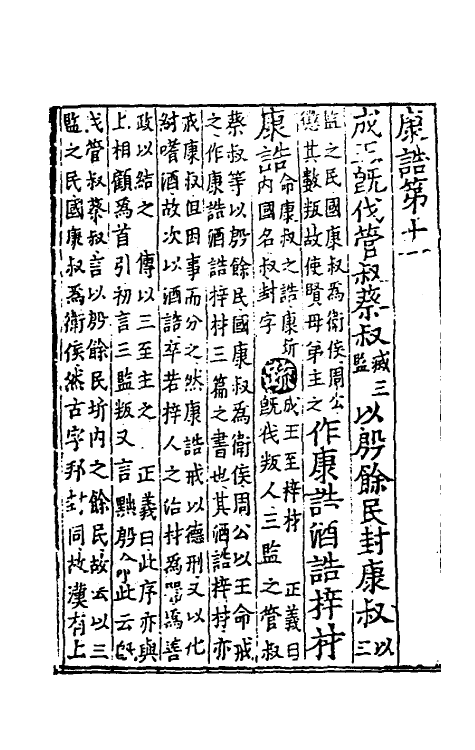 康誥第十一
成王旣伐管叔蔡叔滅三監以殷餘民封康叔以三
監之民國康叔爲衛侯周公懲其數叛故使賢母弟主之作康誥酒誥梓材
康誥命康叔之誥康圻內國名叔封字疏成王至梓材　正義曰旣伐叛人三監之管叔
蔡叔等以殷餘民國康叔爲衛侯周公以王命戒之作康誥酒誥梓材三篇之書也其酒誥梓材亦
戒康叔但因事而分之然康誥戒以德刑又以化紂嗜酒故次以酒誥卒若梓人之治材爲器爲善
政以結之　傳以三至主之　正義曰此序亦與上相顧爲首引初言三監叛又言黜殷命此云旣
伐管叔蔡叔言以殷餘民圻內之餘民故云以三監之民國康叔爲衛侯然古字邦封同故漢有上